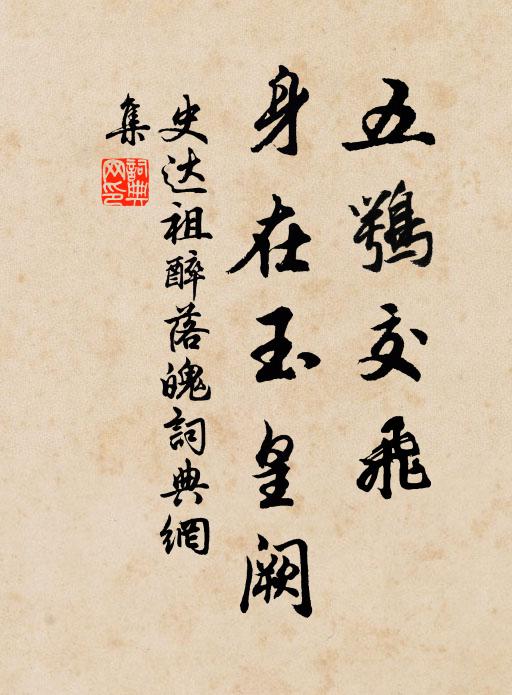 五鶚交飛
身在玉皇闕
史达祖醉落魄詞典網
集
詞典網印